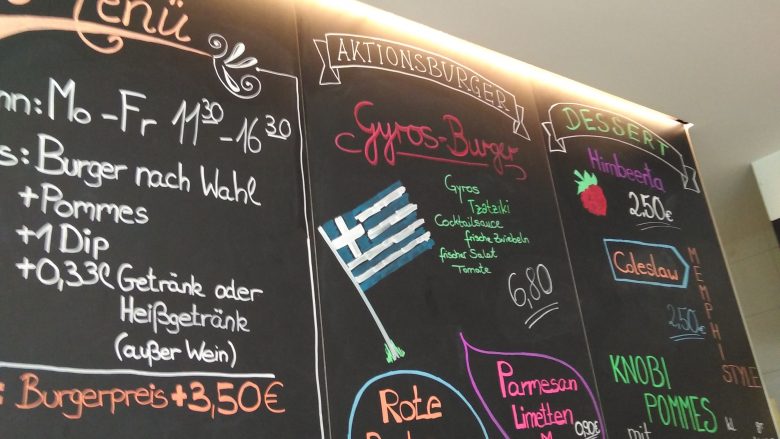 Menü
Mo - Fr 11:30 - 16:30
Burger nach Wahl
+ Pommes
+ 1 Dip
+ 0,33l Getränk oder
Heißgetränk
(außer Wein)
Burgerpreis + 3,50€
AKTIONSBURGER
Gyros-Burger
Gyros
Tzatziki
Cocktailsauce
frische Zwiebeln
frischer Salat
Tomate
6,80
Rote
Parmesan
Limetten
0,90€
DESSERT
Himbeerta
2,50€
Coleslaw
MEMPHIS STYLE
2,50€
KNOBI
POMMES
mit
kl gr